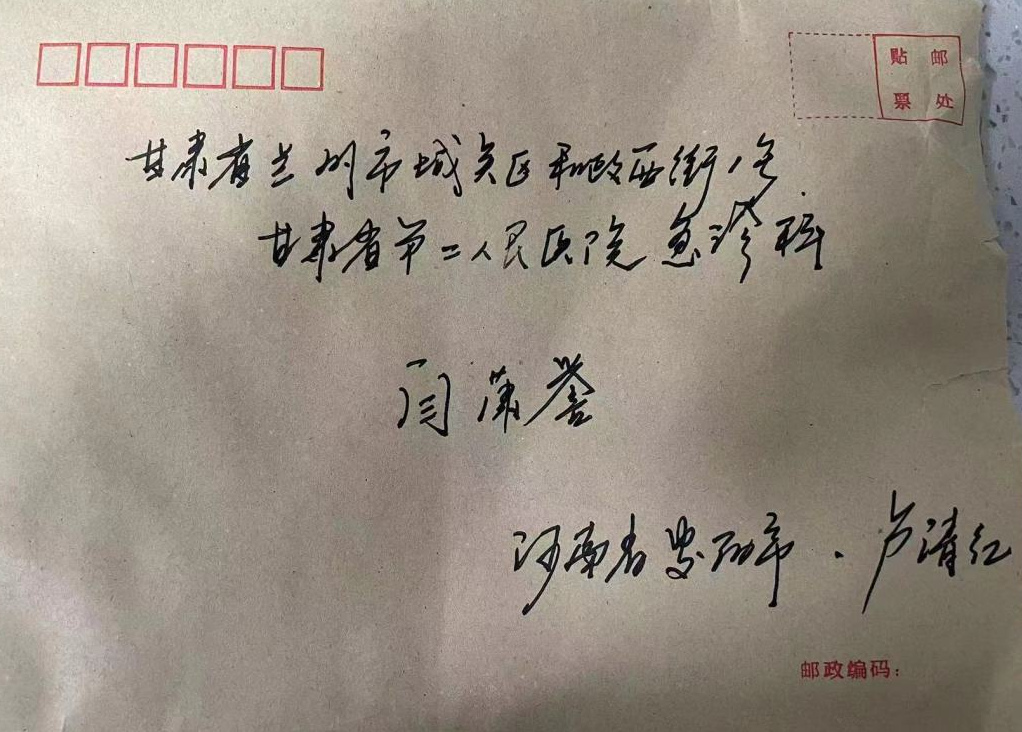 贴邮
票处
甘肃省兰州市城关区和政西街1号
甘肃省第二人民医院急诊科
闫萧誉
河南省 市 · 卢清红
邮政编码：